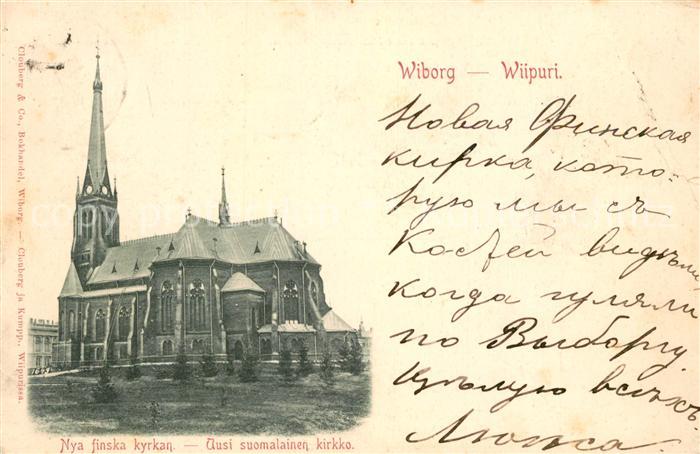 Wiborg — Wiipuri.
Новая Финская
кирка, кото-
рую мы съ
Костей видѣли
когда гуляли
по Выборгу.
Цѣлую всѣхъ
Nya finska kyrkan. — Uusi suomalainen kirkko.
Clouberg & Co., Bokhandel, Wiborg. — Clouberg ja Kumpp., Wiipurissa.